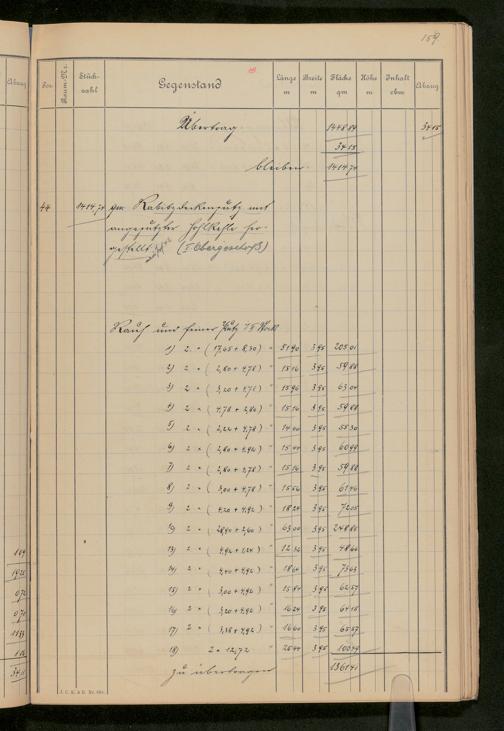 159
Pos. Raum-Nr. Stückzahl Gegenstand Länge m Breite m Fläche qm Höhe m Inhalt cbm Abzug
Übertrag 1448 84 34 15
34 15
bleiben 1414 74
44 1414,74 qm Rabitzdeckenputz mit
angeputzter Hohlkehle her-
gestellt (I Obergeschoß)
Rauh und feiner Putz
1) 2 × (17,65 + 8,30) = 51 90 3 95 205 01
2) 2 × (2,80 + 4,78) = 15 16 3 95 59 88
3) 2 × (3,20 + 4,78) = 15 96 3 95 63 04
4) 2 × (4,78 + 2,80) = 15 16 3 95 59 88
5) 2 × (2,22 + 4,78) = 14 00 3 95 55 30
6) 2 × (2,80 + 4,92) = 15 44 3 95 60 99
7) 2 × (2,80 + 4,78) = 15 16 3 95 59 88
8) 2 × (3,00 + 4,78) = 15 56 3 95 61 46
9) 2 × (4,20 + 4,92) = 18 24 3 95 72 05
10) 2 × (28,90 + 2,60) = 63 00 3 95 248 85
13) 2 × (4,92 + 1,24) = 12 32 3 95 48 66
14) 2 × (4,40 + 4,92) = 18 64 3 95 73 63
15) 2 × (3,00 + 4,92) = 15 84 3 95 62 57
16) 2 × (3,20 + 4,92) = 16 24 3 95 64 15
17) 2 × (3,38 + 4,92) = 16 60 3 95 65 57
18) 2 × 12,72 = 25 44 3 95 100 49
zu übertragen 1361 41